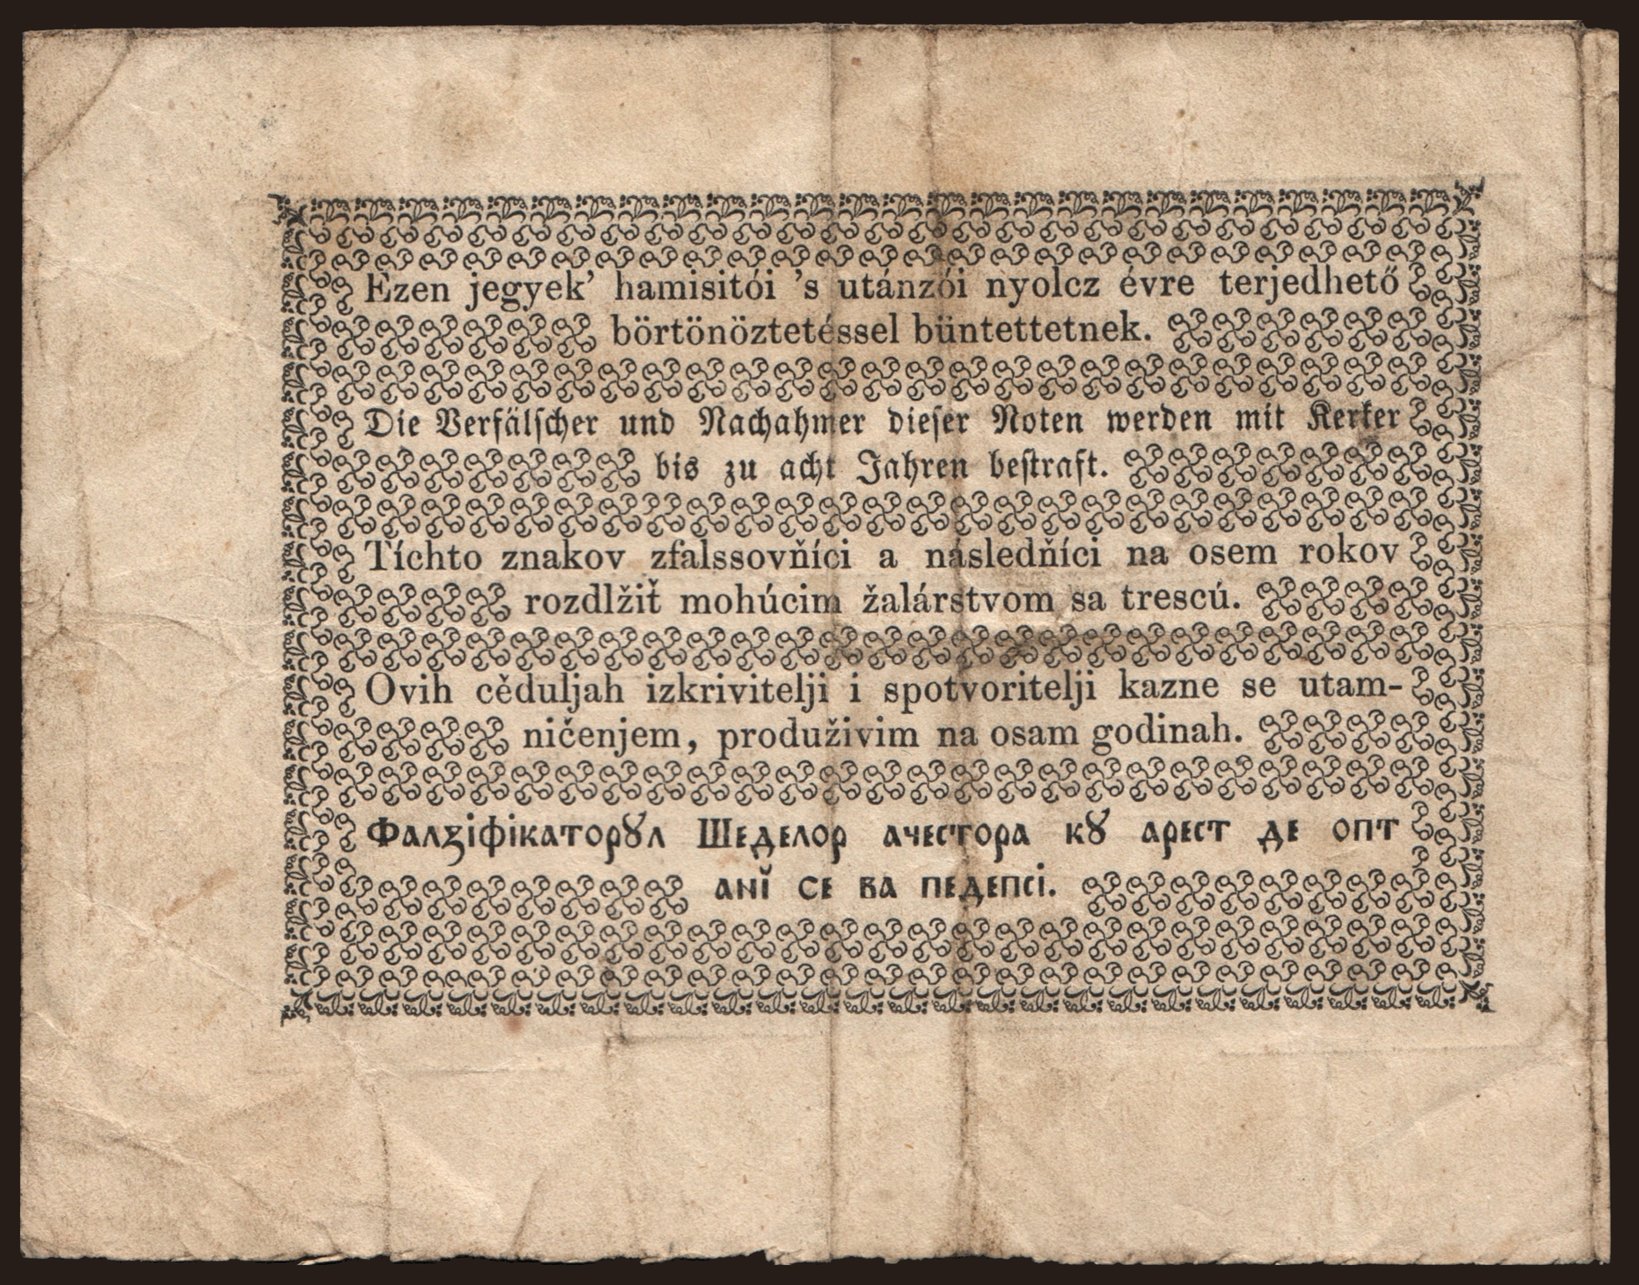 Ezen jegyek’ hamisitói ’s utánzói nyolcz évre terjedhető
börtönöztetéssel büntettetnek.
Die Verfälscher und Nachahmer dieser Noten werden mit Kerker
bis zu acht Jahren bestraft.
Tíchto znakov zfalssovňíci a následňíci na osem rokov
rozdlžiť mohúcim žalárstvom sa trescú.
Ovih cěduljah izkrivitelji i spotvoritelji kazne se utam-
ničenjem, produživim na osam godinah.
Фалꙁіфікаторꙋл Шеделор ачестора кꙋ арест де опт
анї се ва педепсі.